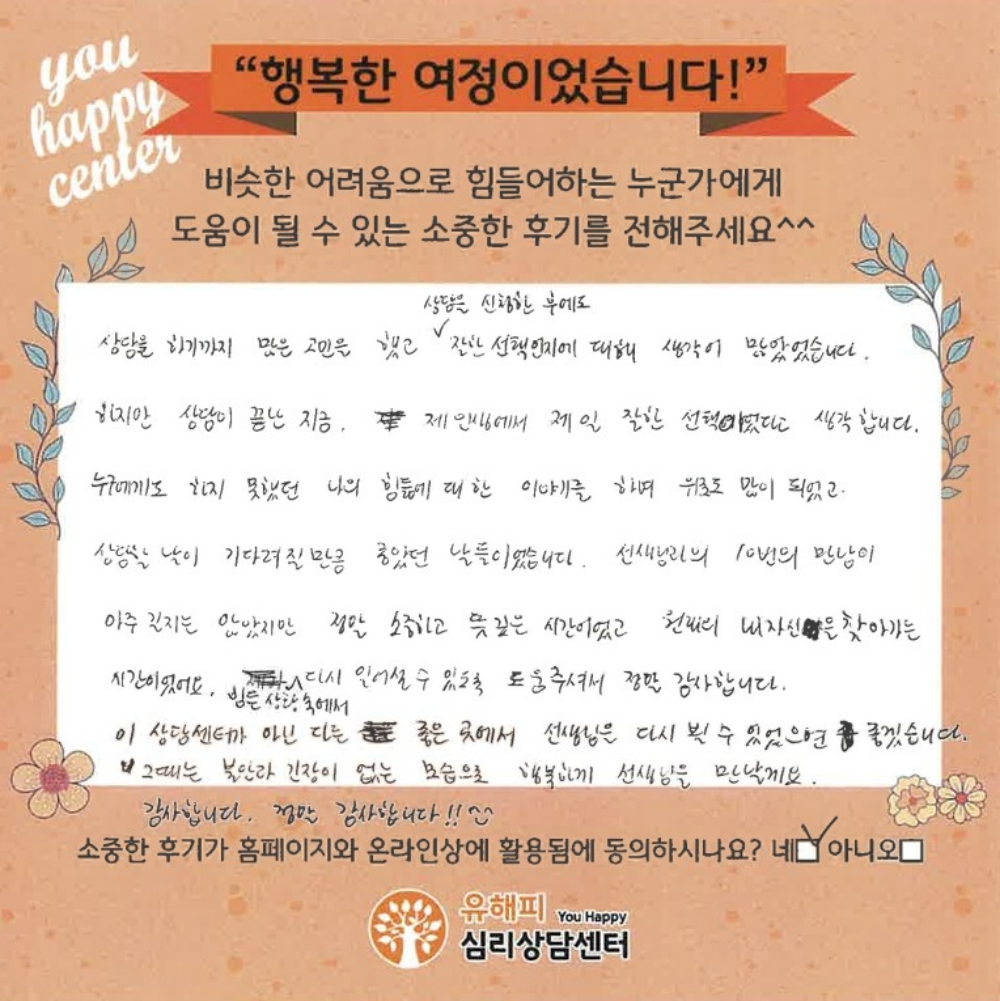 you
happy
center
“행복한 여정이었습니다!”
비슷한 어려움으로 힘들어하는 누군가에게
도움이 될 수 있는 소중한 후기를 전해주세요^^
상담을 신청한 후에도
상담을 하기까지 많은 고민을 했고 ∨ 잘한 선택인지에 대해 생각이 많았었습니다.
하지만 상담이 끝난 지금, 제 인생에서 제일 잘한 선택이었다고 생각합니다.
누구에게도 하지 못했던 나의 힘듦에 대한 이야기를 하며 위로도 많이 되었고.
상담하는 날이 기다려질만큼 좋았던 날들이었습니다. 선생님과의 10번의 만남이
아주 길지는 않았지만 정말 소중하고 뜻깊은 시간이었고 원래의 내자신을 찾아가는
시간이었어요. 다시 일어설 수 있도록 도움주셔서 정말 감사합니다.
힘든 상황 속에서
이 상담센터가 아닌 다른 좋은 곳에서 선생님을 다시 뵐 수 있었으면 좋겠습니다.
그때는 불안과 긴장이 없는 모습으로 행복하게 선생님을 만날게요.
감사합니다. 정말 감사합니다!! ^^
소중한 후기가 홈페이지와 온라인상에 활용됨에 동의하시나요? 네☑ 아니오□
유해피 You Happy
심리상담센터